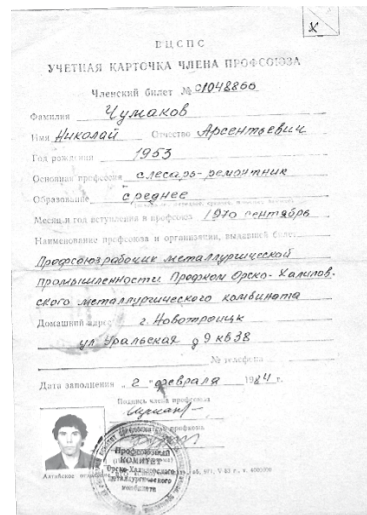 ВЦСПС
УЧЕТНАЯ КАРТОЧКА ЧЛЕНА ПРОФСОЮЗА
Членский билет № 01048860
Фамилия Чумаков
Имя Николай Отчество Арсентьевич
Год рождения 1953
Основная профессия слесарь-ремонтник
Образование среднее
Месяц и год вступления в профсоюз 1970 сентябрь
Наименование профсоюза и организации, выдавшей билет
Профсоюз рабочих металлургической
промышленности Профком Орско-Халилов-
ского металлургического комбината
Домашний адрес г. Новотроицк
ул. Уральская д 9 кв 38
№ телефона
Дата заполнения „2" февраля 1984 г.
Подпись члена профсоюза
Профсоюзный
КОМИТЕТ
Орско-Халиловского
металлургического
комбината